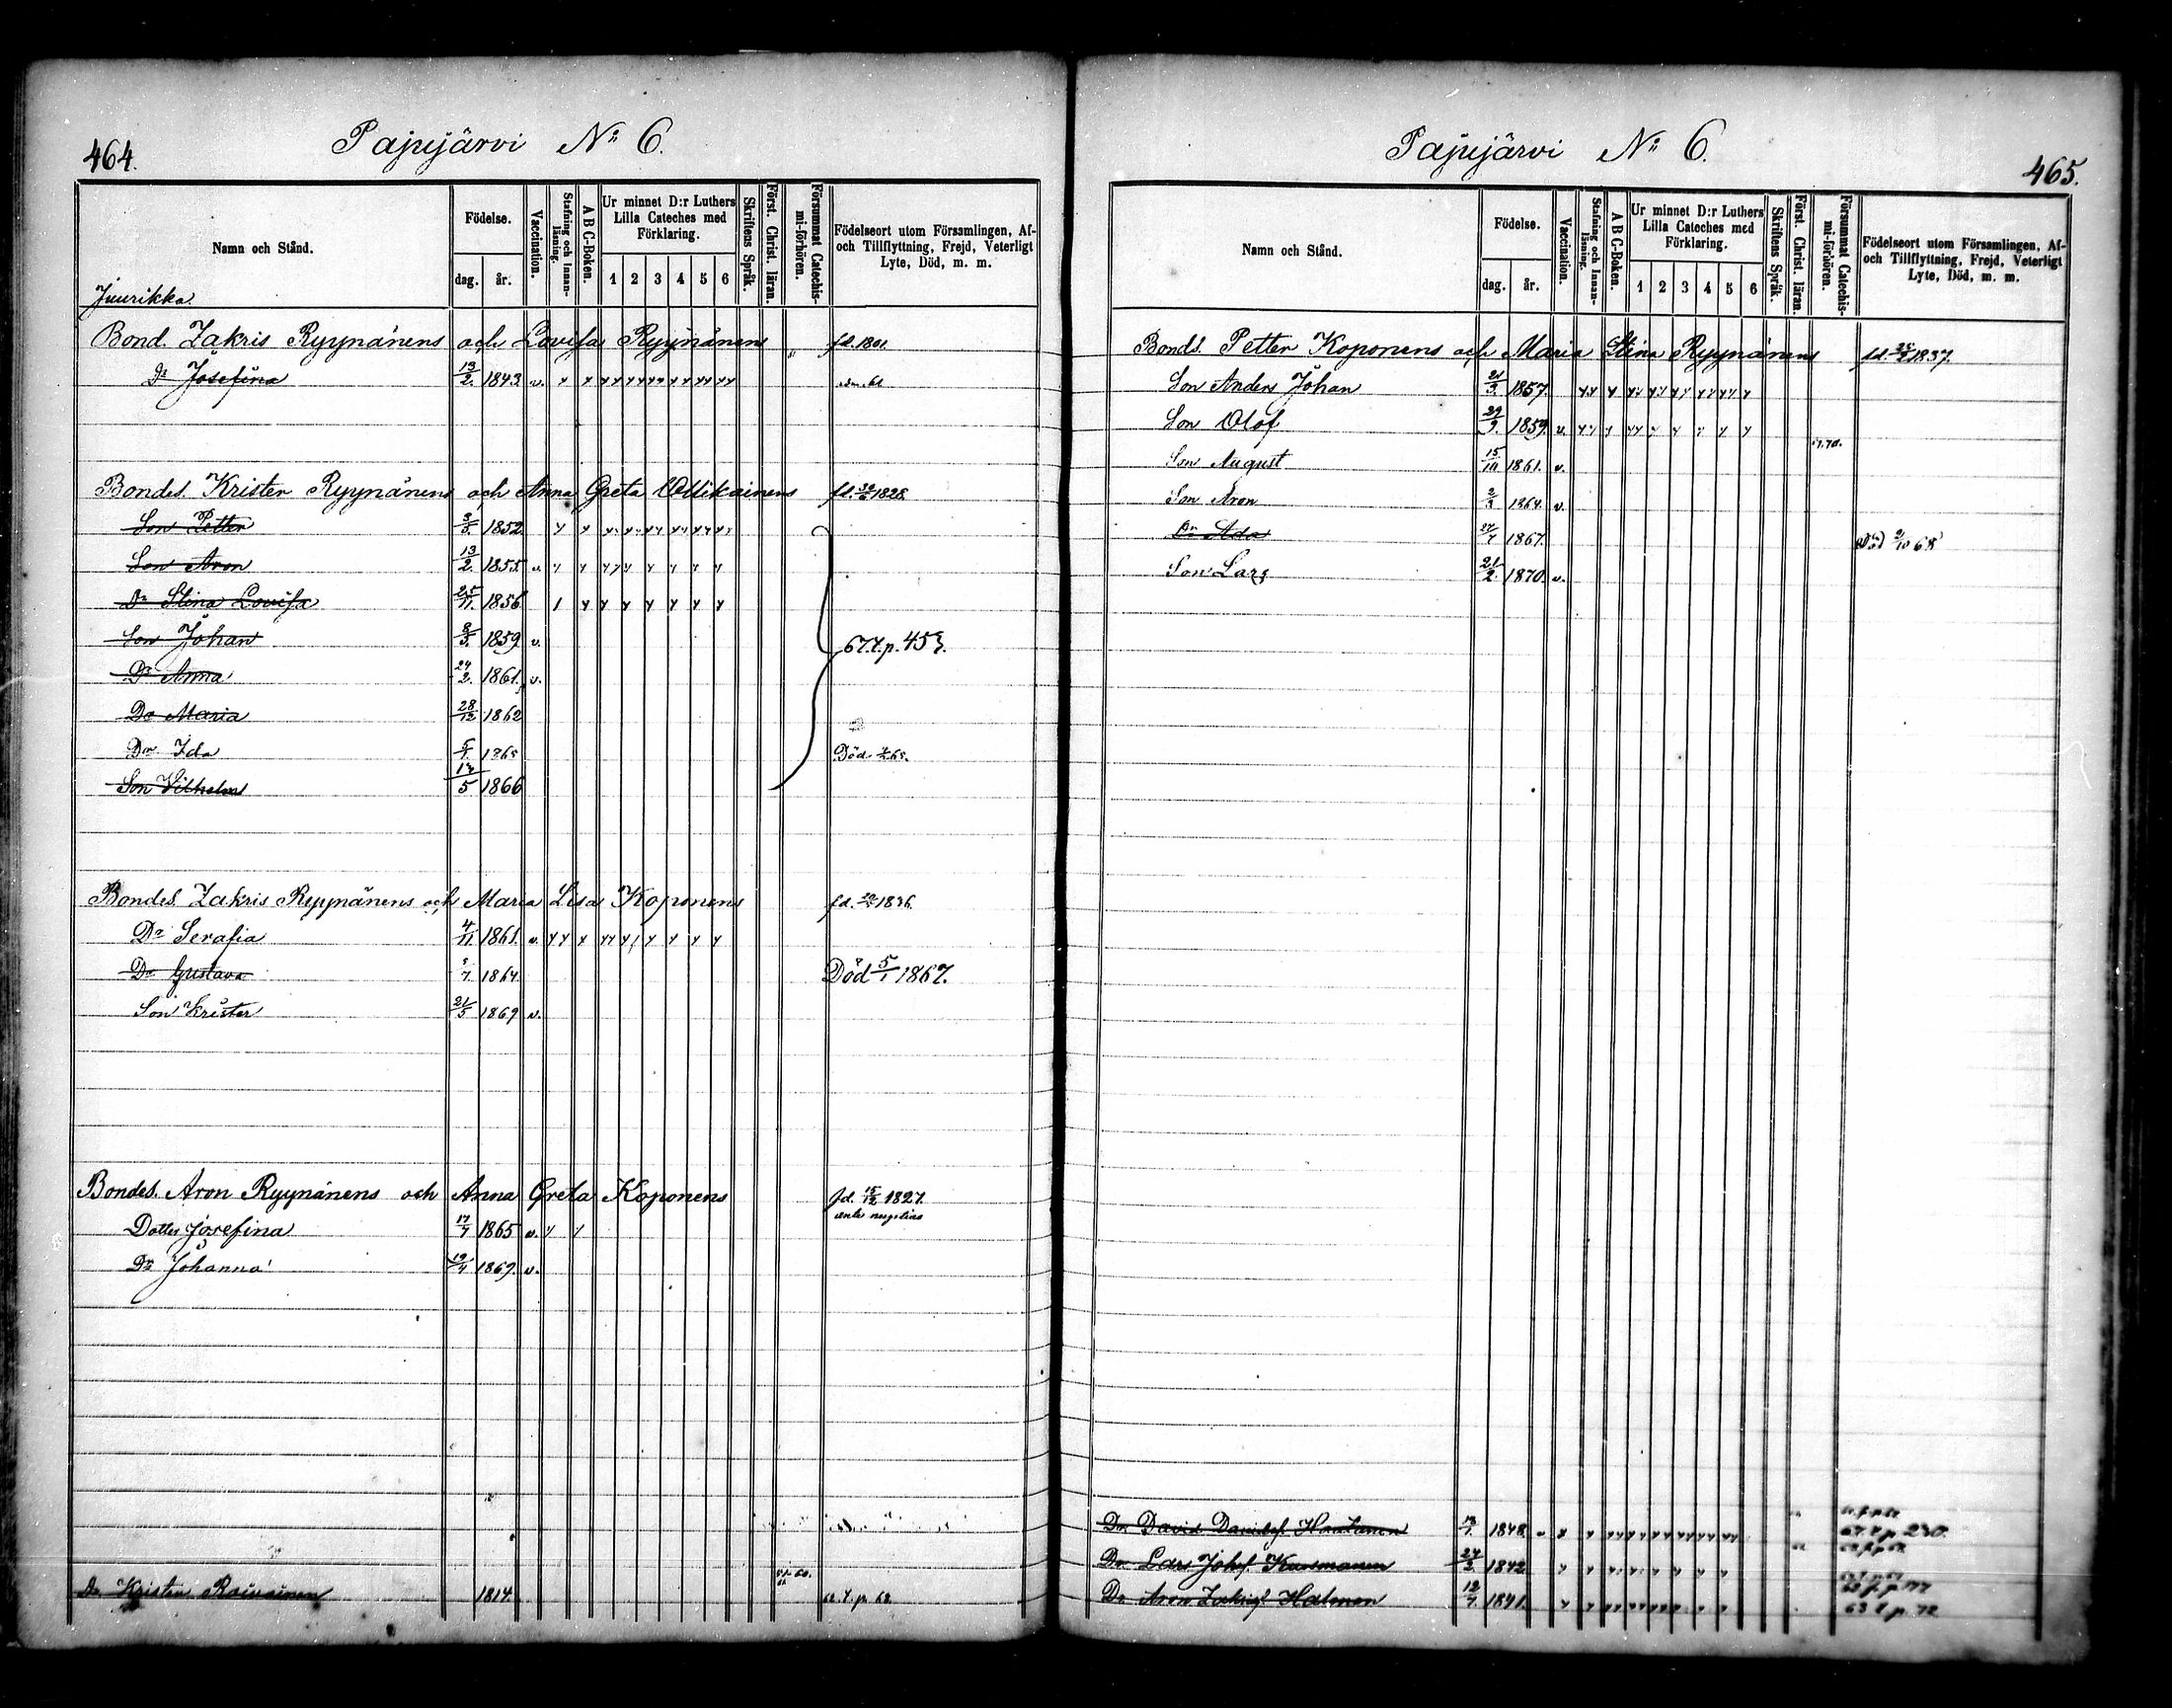 464.
Pajujärvi No 6.
Namn och Stånd.
Födelse.
dag.
år.
Vaccination.
Stafning och Innanläsning.
A B C-Boken.
Ur minnet D:r Luthers Lilla Cateches med Förklaring.
1 2 3 4 5 6
Skriftens Språk.
Först. Christ. läran.
Försummat Catechismi-förhören.
Födelseort utom Församlingen, Af- och Tillflyttning, Frejd, Veterligt Lyte, Död, m. m.
Juurikka
Bond. Zakris Ryynänens och Lovisa Ryynänens fd. 1801.
Dr Josefina 13/2. 1843. v.
Bondes. Krister Ryynänens och Anna Greta Ollikainens fd. 1828.
Son Petter 1852
Son Aron 13/2. 1855. v.
Dr Stina Lovisa 25/11. 1856
Son Johan 8/3. 1859 v.
67 t. p. 453.
Dr Anna 24/2. 1861. v.
Dr Maria 28/12 1862
Dr Ida 1865 Död
Son Vilhelm 1866
Bondes. Zakris Ryynänens och Maria Lisa Koponens fd. 1836.
Dr Serafia 4/11 1861. v.
Dr Gustava 1864. Död 5/1 1867.
Son Krister 21/5 1869 v.
Bondes. Aron Ryynänens och Anna Greta Koponens fd. 15/12 1827.
ante nuptias
Dotter Josefina 17/7 1865 v.
Dr Johanna 19/4 1869. v.
Dr Krister Roivainen 1814.
465.
Pajujärvi No 6.
Namn och Stånd.
Födelse.
dag.
år.
Vaccination.
Stafning och Innanläsning.
A B C-Boken.
Ur minnet D:r Luthers Lilla Cateches med Förklaring.
1 2 3 4 5 6
Skriftens Språk.
Först. Christ. läran.
Försummat Catechismi-förhören.
Födelseort utom Församlingen, Af- och Tillflyttning, Frejd, Veterligt Lyte, Död, m. m.
Bonds. Petter Koponens och Maria Stina Ryynänens fd. 1837.
Son Anders Johan 21/3. 1857.
Son Olof 29/9. 1859. v.
Son August 15/10 1861. v.
Son Aron 2/3 1864. v.
Dr Ada 27/7 1867. Död 2/10 68
Son Lars 21/2. 1870. v.
Dr David Davidsf. 1848.
Dr Lars Johsf. 24/2. 1842
Dr Aron Zakrisf. 12/7. 1841.